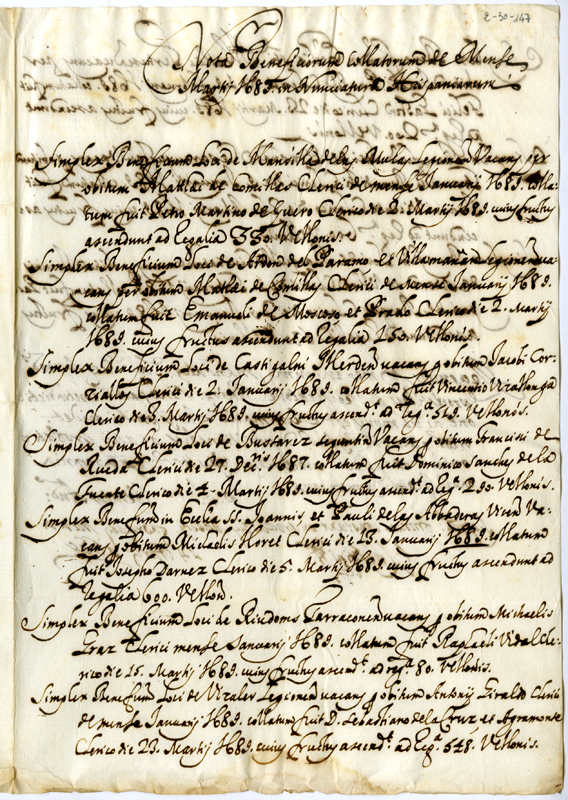 2-30-147
Nota Beneficiorum collatorum de Mense
Martij 1689. in Nunciatura Hispaniarum
Simplex Beneficium Loci de Mansilla de las Mulas Legionen vacans per
obitum Matthei de Comillas Clerici de mense Januarij 1689. colla-
tum fuit Petro Martino de Guero Clerico die 2. Martij 1689. cuius fructus
ascendunt ad Regalia 330. Vellonis.
Simplex Beneficium Loci de Ardon del Paramo et Villamañan Legionen va-
cans per obitum Mathei de Comillas Clerici de Mense Januarij 1689.
collatum fuit Emanueli de Moscoso et Prado Clerico die 2. Martij
1689. cuius fructus ascendunt ad Regalia 150. Vellonis.
Simplex Beneficium Loci de Castigalni Illerden vacans p obitum Jacobi Cor-
Clerici die 2. Januarij 1689. collatum fuit Vincentio
Clerico die 3. Martij 1689. cuius fructus ascend.t ad Reg.a 519. Vellonis.
Simplex Beneficium Loci de Bustares seguntin Vacans p obitum Francisci de
Rueda Clerici die 27. Dec.ris 1687. collatum fuit Dominico Sanches de la
Fuente Clerico die 4. Martij 1689. cuius fructus ascend.t ad Reg.a 290. Vellonis.
Simplex Benefium in Ecclia SS. Joannis et Pauli de las Abbadesas Vicen Va-
cans p obitum Michaelis Floret Clerici die 13. Januarij 1689. collatum
fuit Josepho Darnez Clerico die 5. Martij 1689. cuius fructus ascendunt ad
Regalia 600. Vellon.
Simplex Beneficium Loci de Riudoms Tarraconen vacans p obitum Michaelis
Graz Clerici mense Januarij 1689. collatum fuit Raphaeli Vidal Cle-
rico die 15. Martij 1689. cuius fructus ascend.t ad reg.a 80. Vellonis.
Simplex Benefium Loci de Legionen vacans p obitum Antonij Giraldo Clerici
de mense Januarij 1689. collatum fuit D. Sebastiano de la Cruz et Agramonte
Clerico die 23. Martij 1689. cuius fructus ascend.t ad Reg.a 548. Vellonis.